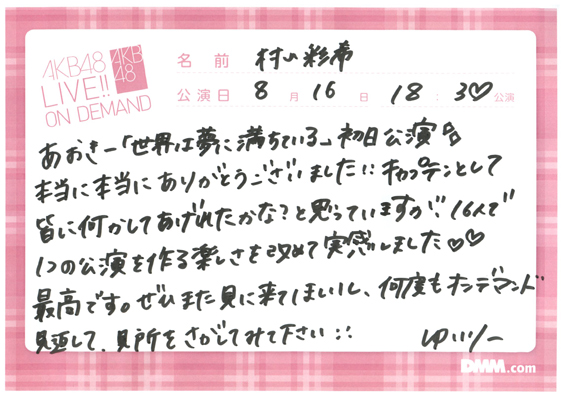 AKB48
LIVE!!
ON DEMAND
AKB
48
名前 村山彩希
公演日 8月16日 18:30公演
あおきー「世界は夢に満ちている」初日公演
本当に本当にありがとうございました!! キャプテンとして
皆に何かしてあげれたかな?と思っていますが、16人で
1つの公演を作る楽しさを改めて実感しました♡♡
最高です。ぜひまた見に来てほしいし、何度もオンデマンド
見返して、見所をさがしてみて下さい!!
ゆいりー
DMM.com